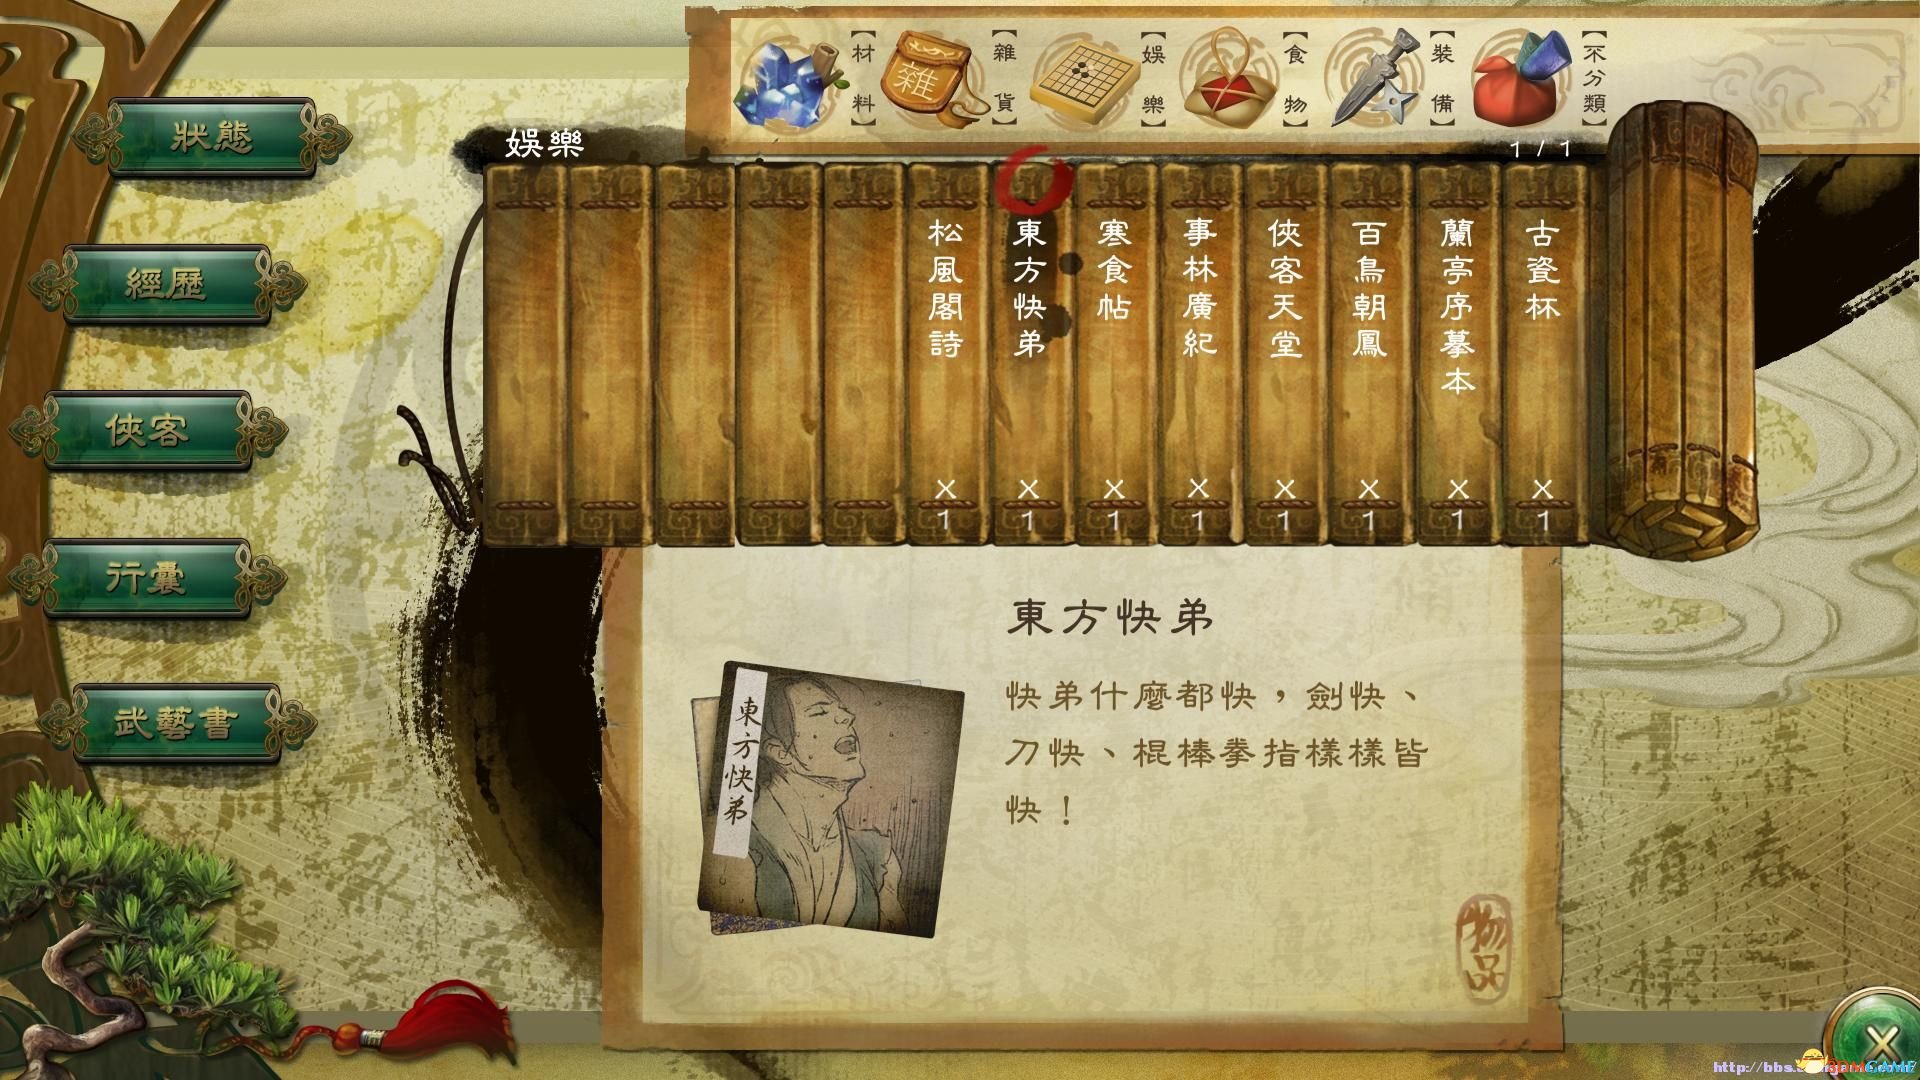 【材料】
【雜貨】
【娛樂】
【食物】
【裝備】
【不分類】
雜
娛樂
1/1
狀態
經歷
俠客
行囊
武藝書
古瓷杯
×1
蘭亭序摹本
×1
百鳥朝鳳
×1
俠客天堂
×1
事林廣紀
×1
寒食帖
×1
東方快弟
×1
松風閣詩
×1
東方快弟
快弟什麼都快，劍快、
刀快、棍棒拳指樣樣皆
快！
東方快弟
物品